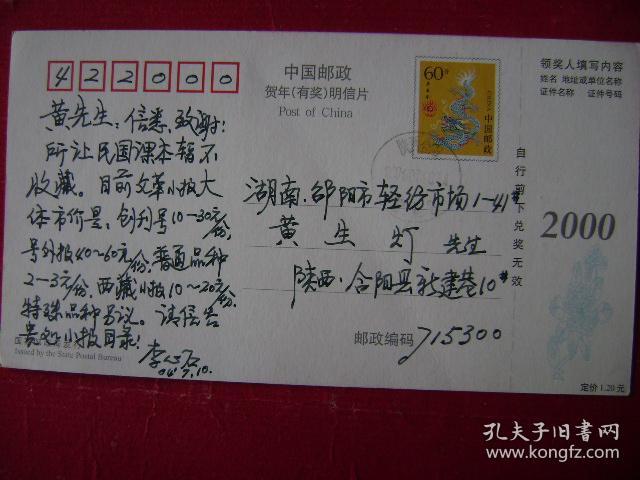 422000
中国邮政
贺年(有奖)明信片
Post of China
60分
CHINA
中国邮政
领奖人填写内容
姓名 地址或单位名称
证件名称 证件号码
自行剪下兑奖无效
2000
黄先生:信悉,致谢!
所让民国课本暂不
收藏。目前文革小报大
体市价是:创刊号10—30元/份,
号外报40~60元/份,普通品种
2—3元/份,西藏小报10~20元/份,
特殊品种另议。请复告
贵处小报目录!
04.7.10.
湖南.邵阳市轻纺市场1-41#
黄生灯 先生
陕西.合阳县新建巷10#
邮政编码 715300
Issued by the State Postal Bureau
定价1.20元
孔夫子旧书网
www.kongfz.com